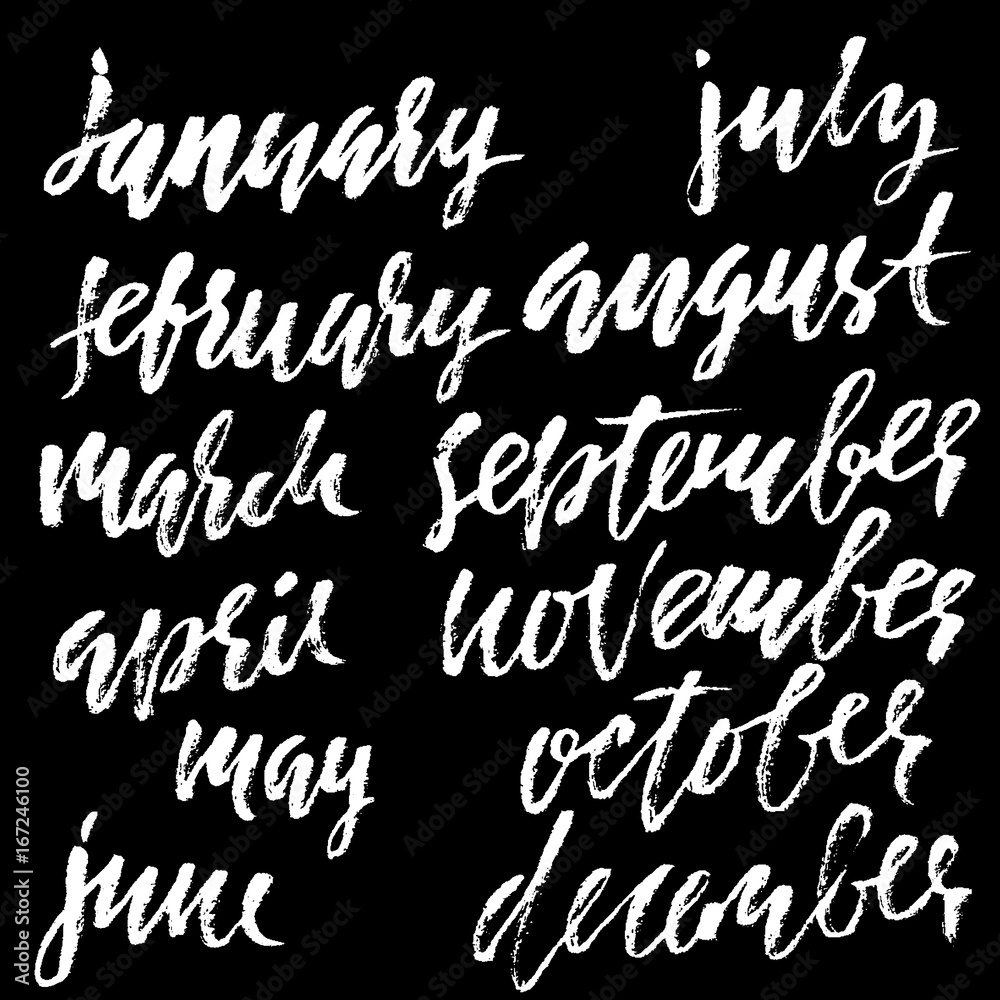 january
february
march
april
may
june
july
august
september
november
october
december
Adobe Stock | #167246100